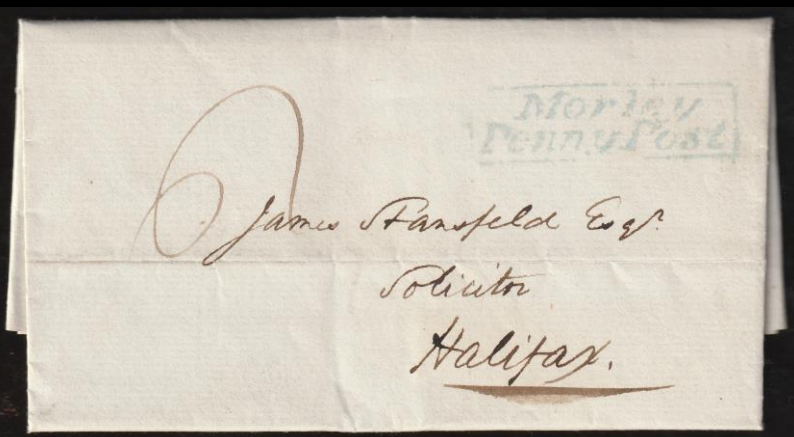 Morley
Penny Post
James Stansfeld Esqr.
Solicitor
Halifax.